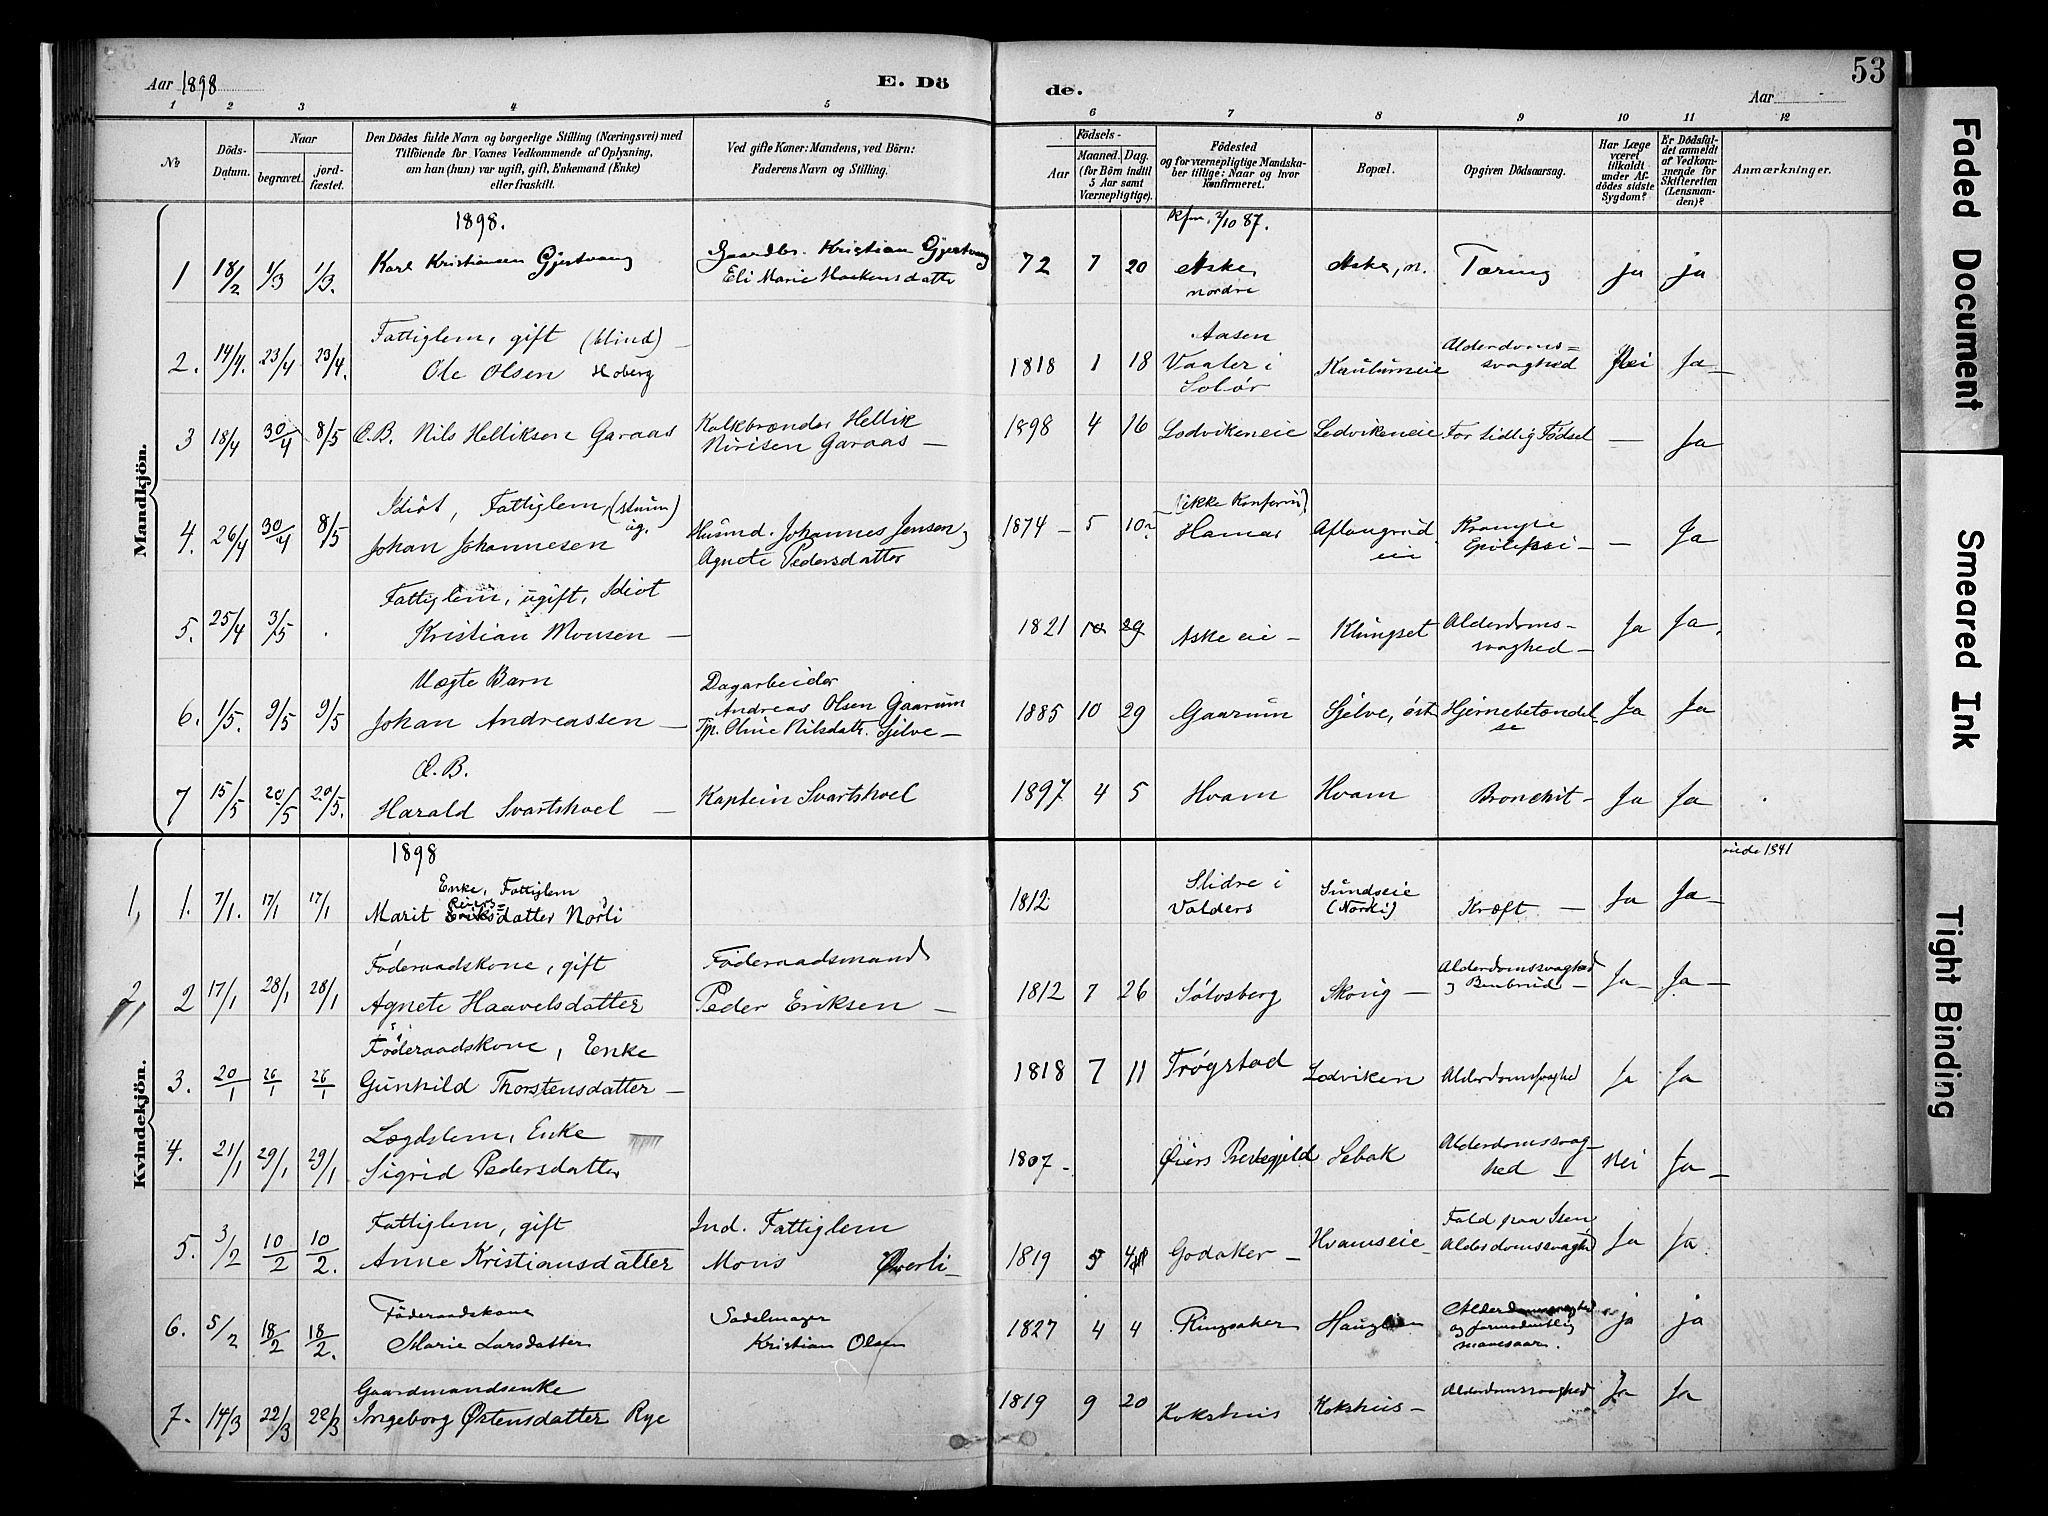 Aar 1898
E. Dö
de.
Aar
53
1 2 3 4 5 6 7 8 9 10 11 12
No
Döds-Datum.
Naar
begravet.
jordfæstet.
Den Dödes fulde Navn og borgerlige Stilling (Næringsvei) med
Tilföiende for Voxnes Vedkommende af Oplysning,
om han (hun) var ugift, gift, Enkemand (Enke)
eller fraskilt.
Ved gifte Koner: Mandens, ved Börn:
Faderens Navn og Stilling.
Födsels-
Aar
Maaned. Dag.
(for Börn indtil
5 Aar samt
Værnepligtige).
Födested
og for værnepligtige Mandska-
ber tillige: Naar og hvor
konfirmeret.
Bopæl.
Opgiven Dödsaarsag.
Har Læge
været
tilkaldt
under Af-
dödes sidste
Sygdom?
Er Dödsfal-
det anmeldt
af Vedkom-
mende for
Skifteretten
(Lensman-
den)?
Anmærkninger.
Mandkjön.
1898.
Kfm. 2/10 87.
1 18/2 1/3 1/3. Karl Kristiansen Gjestvang
Gaardbr. Kristian Gjestvang
Eli Marie Haakensdatter
72 7 20 Aske nordre
Aske, n. Tæring ja ja
2. 14/4. 23/4 23/4. Fattiglem, gift (blind)
Ole Olsen Hoberg
1818 1 18 Aasen
Vaaler i
Solør
Kautumeie Alderdoms=
svaghed Nei Ja
3 18/4 30/4 8/5 Æ.B. Nils Helliksen Garaas
Kalkbrænder Hellik
Nirisen Garaas
1898 4 16 Lodvikeneie Lodvikeneie For tidlig Fødsel — Ja
4. 26/4 30/4 8/5 Idiot, Fattiglem, (stum) ug.
Johan Johannesen
Husmd. Johannes Jensen,
Agnete Pedersdatter
1874 5 10 (ikke Konfirm)
Hamar
Aflangrud
eie
Krampe
Epilepsi — Ja
5. 25/4 3/5 . Fattiglem, ugift, Idiot
Kristian Monsen
1821 10 29 Aske eie Klungset Alderdoms-
svaghed Ja Ja.
6. 1/5. 9/5 9/5 Uægte Barn
Johan Andreassen
Dagarbeider
Andreas Olsen Gaarum
Tjp. Oline Nilsdatr. Sjelve
1885 10 29 Gaarum Sjelve, øst Hjernebetændel
se Ja Ja
7 15/5 20/5 20/5. Æ.B.
Harald Svartshoel
Kaptein Svartshoel
1897 4 5 Hvam Hvam Bronchit Ja Ja
Kvindekjön.
1898
1, 1. 7/1. 17/1 17/1 Enke, Fattiglem
Marit datter Norli
1812 Slidre i
Valders
Sundseie
(Norli) Kræft Ja Ja
1841
2, 2 17/1 28/1 28/1 Föderaadskone, gift
Agnete Haavelsdatter
Föderaadsmand
Peder Eriksen
1812 7 26 Sølvsberg Skovig Alderdomssvaghed
og Benbrud Ja Ja
3. 20/1 26/1 26/1 Föderaadskone, Enke
Gunhild Thorstensdatter
1818 7 11 Trøgstad Lodviken Alderdomssvaghed Ja Ja
4. 21/1 29/1 29/1 Lægdslem, Enke
Sigrid Pedersdatter
1807 Øiers Præstegjeld Sebak Alderdomssvag-
hed Nei Ja
5. 3/2 10/2 10/2. Fattiglem, gift
Anne Kristiansdatter
Ind. Fattiglem
Mons Øverli
1819 5 4 Godaker Hvamseie Fald paa Isen
Alderdomssvaghed Ja Ja
6. 5/2 18/2 18/2. Föderaadskone
Marie Larsdatter
Sadelmager
Kristian Olsen
1827 4 4 Ringsaker Alderdomssvaghed
og formodentlig
mavesaar. ja ja
7. 14/3 22/3 22/3 Gaardmandsenke
Ingeborg Østensdatter Rye
1819 9 20 Kokshuis Kokshuis Alderdomssvaghed Ja Ja
Faded Document
Smeared Ink
Tight Binding